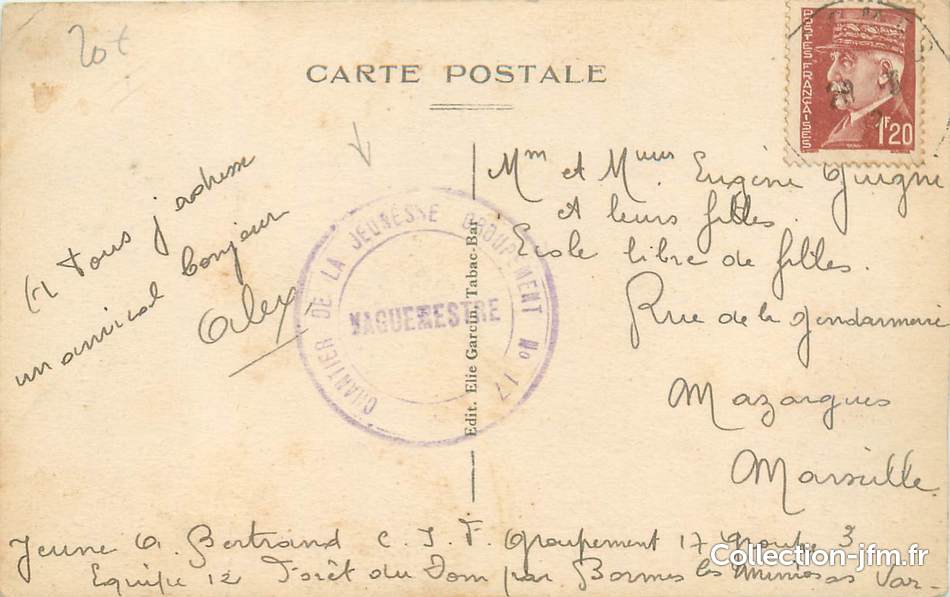 20€
CARTE POSTALE
POSTES FRANÇAISES
1F20
A tous j'adresse
un amical bonjour
Alex
CHANTIER DE LA JEUNESSE GROUPEMENT No 17
VAGUEMESTRE
Edit. Elie Garcin, Tabac-Bar
Mm et Mmeur Eugène Guigne
et leurs filles.
Ecole libre de filles.
Rue de la gendarmerie
Mazargues
Marseille.
Jeune A. Bertrand C.J.F. Groupement 17 Groupe 3
Equipe 12 Forêt du Dom par Bormes les Mimosas Var-
Collection-jfm.fr